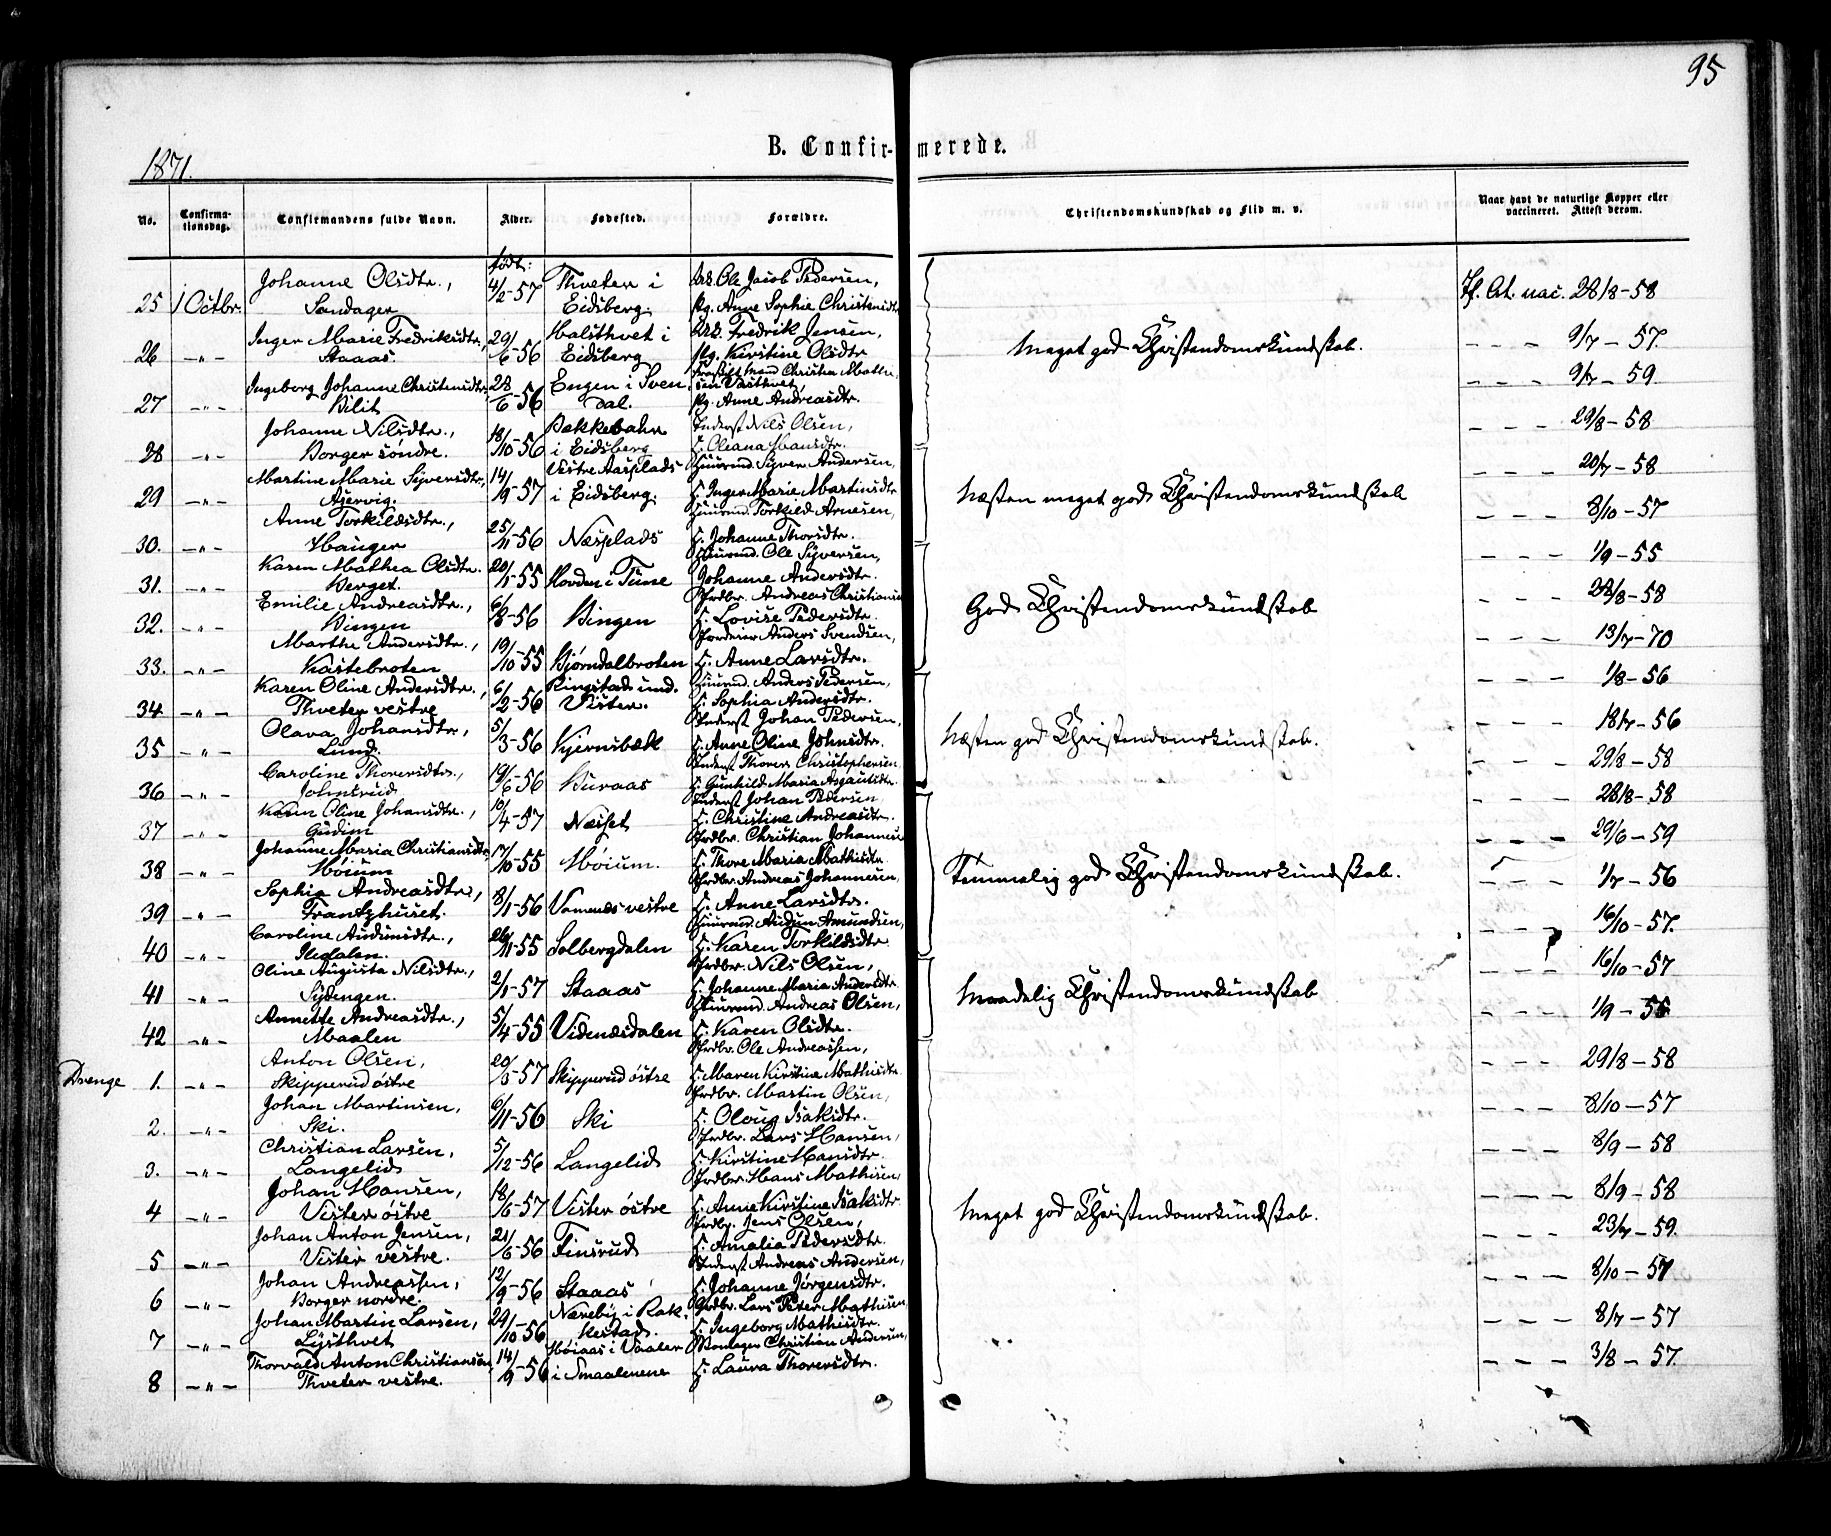 95
1871.
B. Confir- merede.
No. Confirma- tionsdag. Confirmandens fulde Navn. Alder. Fødested. Forældre. Christendomskundskab og Flid m. v. Naar havt de naturlige Kopper eller vaccineret. Attest derom.
født:
Johanne Olsdtr., 4/2-57 Thveter i Ole Jacob Pedersen,
25 1 Octbr. Søndager Eidsberg. Pg. Anne Sophie Christensdtr 28/8-58
Inger Marie Fredriksdtr., 29/6-56 Halsthvet i Fredrik Jensen,
26 -"- Staaas Eidsberg Pg. Kirstine Olsdtr Meget god Christendomskundskab. - - - 9/7-57.
Ingeborg Johanne Christensdtr 28/6-56 Engen i Sven Christen Mathi-
27 -"- Bilit dal. Pg. Anne Andreasdtr. - - - 9/7-59.
Johanne Nilsdtr., 18/10-56 Inderst Nils Olsen,
28 -"- Borger søndre. i Eidsberg H. Oleana Hansdtr. - - - 29/8-58
Martine Marie Syversdtr., 14/9-57 Vestre Aasplads Huusmd. Syver Andersen,
29 -"- Aservig. i Eidsberg. H. Inger Marie Martinsdtr Næsten meget god Christendomskundskab - - - 20/7-58
Anne Torkildsdtr., 25/11-56 Næsplads Huusmd. Torkild Arnesen,
30. -"- Hauger H. Johanne Thorsdtr. - - - 8/10-57
Karen Mathea Olsdtr. 20/1-55 Hovden i Tune Huusmd. Ole Syversen,
31. -"- Berget. Johanne Andersdtr. - - - 1/9-55
Emilie Andreasdtr., 6/8-56 Bingen Grdbr. Andreas Christiansen
32. -"- Bingen H. Lovise Pedersdtr. God Christendomskundskab - - - 28/8-58
Marthe Andersdtr., 19/10-55 Bjørndalbroten Anders Svendsen,
33. -"- Kastebroten H. Anne Larsdtr. - - - 13/7-70
Karen Oline Andersdtr., 6/2-56 Ringstad und. Huusmd. Anders Pedersen,
34 -"- Thveter vestre Vister. H. Sophia Andersdtr. - - - 1/8-56
Olava Johansdtr., 5/3-56 Kjernsbæk Inderst Johan Pedersen,
35 -"- Lund. H. Anne Oline Johnsdtr. Næsten god Christendomskundskab. - - - 18/7-56
Caroline Thorersdtr., 19/6-56 Buraas Inderst Thorer Christophersen
36 -"- Johnsrud H. Gunhild Maria Asgautsdtr. - - - 29/8-58
Karen Oline Johansdtr., 10/4-57 Næsset Inderst Johan Pedersen,
37 -"- Gudim H. Christine Andreasdtr. - - - 28/8-58
Johanne Maria Christiansdtr 17/10-55 Møium. Grdbr. Christian Johannesen
38 -"- Møium H. Thore Maria Mathisdtr - - - 29/6-59
Sophia Andreasdtr., 8/1-56 Vamnæs vestre Grdbr. Andreas Johannesen,
39 -"- Frantzhuset. H. Anne Larsdtr. Temmelig god Christendomskundskab. - - - 1/7-56
Caroline Audunsdtr., 26/11-55 Solbergdalen Huusmd. Audun Amundsen,
40 -"- Iledalen. H. Karen Torkildsdtr - - - 16/10-57.
Oline Augusta Nilsdtr., 2/1-57 Staaas Grdbr. Nils Olsen,
41 -"- Sydengen. H. Johanne Maria Andersdtr - - - 16/10-57
Annette Andreasdtr., 5/4-55 Videnæsdalen Huusmd. Andreas Olsen,
42 -"- Maalen H. Karen Olsdtr. Maadelig Christendomskundskab - - - 1/9-55
Anton Olsen, 20/3-57 Skipperud østre Grdbr. Ole Andreassen,
Drenge 1. -"- Skipperud østre H. Maren Kirstine Mathisdtr - - - 29/8-58
Johan Martinsen, 6/11-56 Ski Grdbr. Martin Olsen,
2. -"- Ski. H. Oloug Isaksdtr. - - - 8/10-57
Christian Larsen, 5/12-56 Langelid Grdbr. Lars Hansen,
3. -"- Langelid H. Kirstine Hansdtr. - - - 8/9-58
Johan Hansen, 18/6-57 Vister østre Grdbr. Hans Mathisen,
4 -"- Vister østre H. Anne Kirstine Isaksdtr Meget god Christendomskundskab. - - - 8/9-58
Johan Anton Jensen, 21/6-56 Finsrud Grdbr. Jens Olsen,
5 -"- Vister vestre. H. Amalia Pedersdtr. - - - 23/7-59.
Johan Andreassen, 12/9-56 Staaas Inderst Andreas Andersen,
6 -"- Borger nordre. H. Johanne Jørgensdtr. - - - 8/10-57
Johan Martin Larsen, 29/10-56 Næreby i Rak- Grdbr. Lars Peter Mathisen,
7 -"- Lysthvet kestad. H. Ingeborg Mathisdtr. - - - 8/7-57
Thorvald Anton Christiansen 14/9-56 Høiaas i Vaaler Christian Andersen,
8 -"- Thveter vestre. i Smaalenene H. Laura Thorersdtr. - - - 3/8-57.